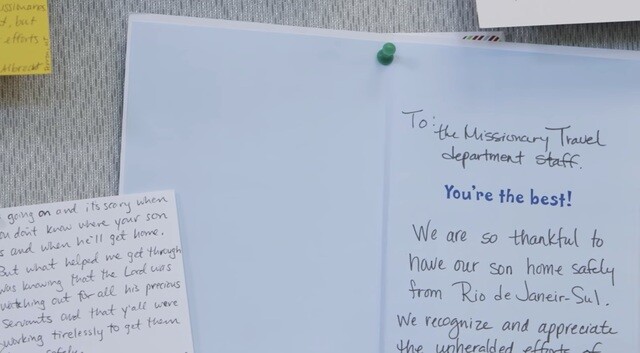 issionaries
t, but
efforts
Albrecht
going on and it's scary when
ou don't know where your son
s and when he'll get home.
But what helped me get through
was knowing that the Lord was
watching out for all his precious
Servants and that y'all were
working tirelessly to get them
safely
To: the Missionary Travel
department staff.
You're the best!
We are so thankful to
have our son home safely
from Rio de Janeir-Sul.
We recognize and appreciate
the unheralded efforts of